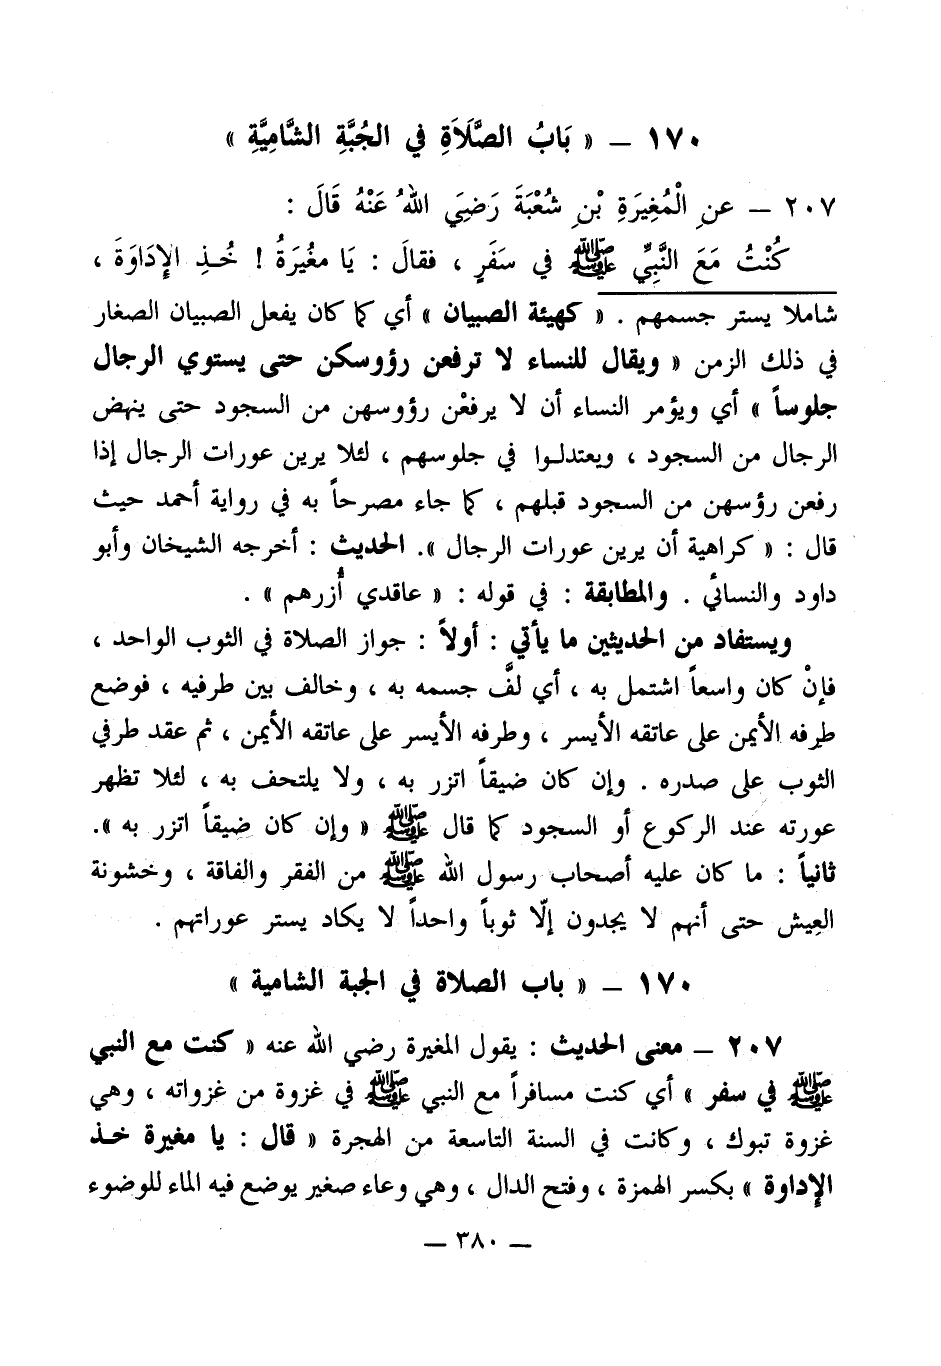 ١٧٠ ــ « بَابُ الصَّلَاَةِ في الجُبَّةِ الشَّامِيَّةِ »
٢٠٧ ــ عنِ الْمُغِيرَةِ بْنِ شُعْبَةَ رَضِيَ اللهُ عَنْهُ قَالَ :
كُنْتُ مَعَ النَّبِيِّ ﷺ في سَفَرٍ ، فقالَ : يَا مغُيرَةُ ! خُـذِ الإدَاوَةَ ،
شاملا يستر جسمهم . « كهيئة الصبيان » أي كما كان يفعل الصبيان الصغار
في ذلك الزمن « ويقال للنساء لا ترفعن رؤوسكن حتى يستوي الرجال
جلوساً » أي ويؤمر النساء أن لا يرفعْن رؤوسهن من السجود حتى ينهض
الرجال من السجود ، ويعتدلـوا في جلوسهم ، لئلا يرين عورات الرجال إذا
رفعن رؤسهن من السجود قبلهم ، كما جاء مصرحاً به في رواية أحمد حيث
قال : « كراهية أن يرين عورات الرجال ». الحديث : أخرجه الشيخان وأبو
داود والنسائي . والمطابقة : في قوله : « عاقدي أُزرهم » .
ويستفاد من الحديثين ما يأتي : أولاً : جواز الصلاة في الثوب الواحد ،
فإنْ كان واسعاً اشتمل به ، أي لفَّ جسمه به ، وخالف بين طرفيه ، فوضع
طرفه الأيمن على عاتقه الأيسر ، وطرفه الأيسر على عاتقه الأيمن ، ثم عقد طرفي
الثوب على صدره . وإن كان ضيقاً اتزر به ، ولا يلتحف به ، لئلا تظهر
عورته عند الركوع أو السجود كما قال ﷺ « وإن كان ضيقاً اتزر به ».
ثانياً : ما كان عليه أصحاب رسول الله ﷺ من الفقر والفاقة ، وخشونة
العيش حتى أنهم لا يجدون إلّا ثوباً واحداً لا يكاد يستر عوراتهم .
١٧٠ ــ « باب الصلاة في الجبة الشامية »
٢٠٧ ــ معنى الحديث : يقول المغيرة رضي الله عنه « كنت مع النبي
ﷺ في سفر » أي كنت مسافراً مع النبي ﷺ في غزوة من غزواته ، وهي
غزوة تبوك ، وكانت في السنة التاسعة من الهجرة « قال : يا مغيرة خـذ
الإداوة » بكسر الهمزة ، وفتح الدال ، وهي وعاء صغير يوضع فيه الماء للوضوء
ــ ٣٨٠ ــ